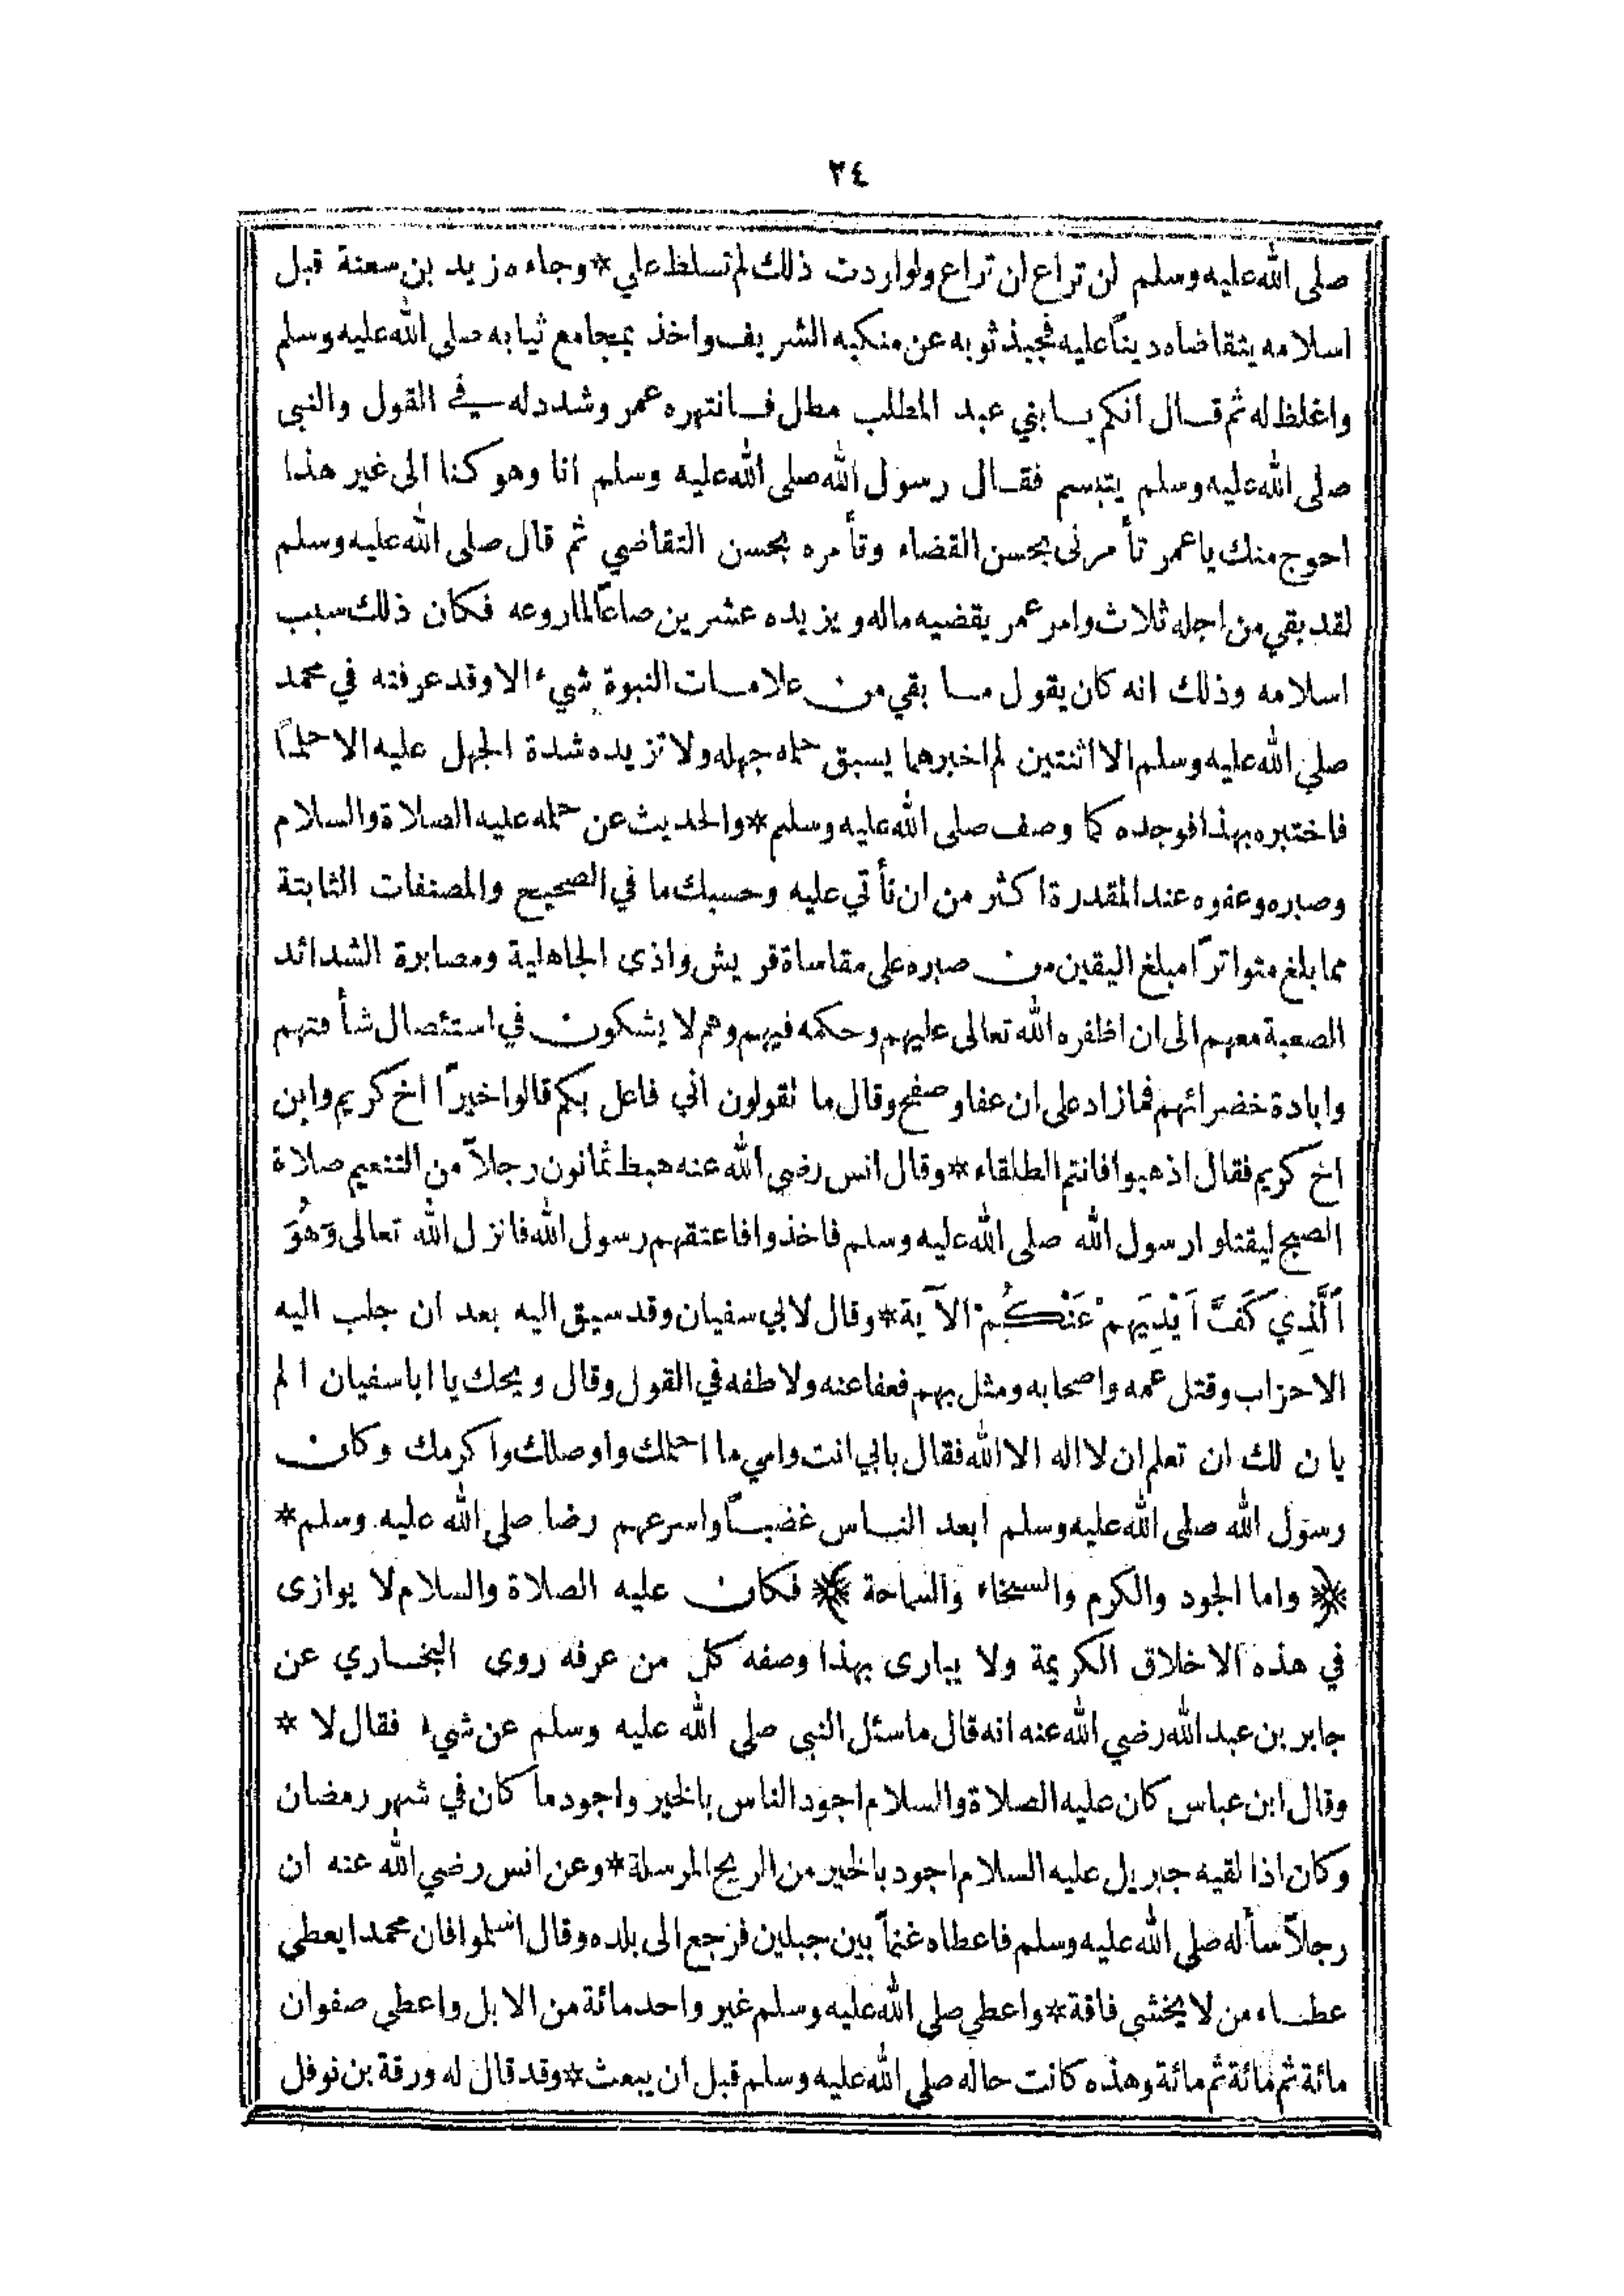 ٢٤
صلى الله عليه وسلم لن تراع لن تراع ولو اردت ذلك لم تسلط علي * وجاءه زيد بن سعنة قبل
اسلامه يتقاضاه دينًا عليه فجبذ ثوبه عن منكبه الشريف واخذ بمجامع ثيابه صلى الله عليه وسلم
واغلظ له ثم قال انكم يا بني عبد المطلب مطل فانتهره عمر وشدد له في القول والنبى
صلى الله عليه وسلم يتبسم فقال رسول الله صلى الله عليه وسلم انا وهو كنا الى غير هذا
احوج منك يا عمر تأمرنى بحسن القضاء وتأمره بحسن التقاضي ثم قال صلى الله عليه وسلم
لقد بقي من اجله ثلاث وامر عمر يقضيه ماله ويزيده عشرين صاعًا لما روعه فكان ذلك سبب
اسلامه وذلك انه كان يقول ما بقي من علامات النبوة شيء الا وقد عرفته في محمد
صلى الله عليه وسلم الا اثنتين لم اخبرهما يسبق حمله جهله ولا تزيده شدة الجهل عليه الا حلمًا
فاختبره بهذا فوجده كما وصف صلى الله عليه وسلم * والحديث عن حلمه عليه الصلاة والسلام
وصبره وعفوه عند المقدرة اكثر من ان نأتي عليه وحسبك ما في الصحيح والمصنفات الثابتة
مما بلغ متواترًا مبلغ اليقين من صبره على مقاساة قريش واذى الجاهلية ومصابرة الشدائد
الصعبة معهم الى ان اظفره الله تعالى عليهم وحكمه فيهم وهم لا يشكون في استئصال شأفتهم
وابادة خضرائهم فما زاد على ان عفا وصفح وقال ما نقولون اني فاعل بكم قالوا خيرًا اخ كريم وابن
اخ كريم فقال اذهبوا فانتم الطلقاء * وقال انس رضي الله عنه هبط ثمانون رجلاً من التنعيم صلاة
الصبح ليقتلوا رسول الله صلى الله عليه وسلم فاخذوا فاعتقهم رسول الله فانزل الله تعالى وَهُوَ
اَلَّذِي كَفَّ اَيْدِيَهِمْ عَنْكُمْ الآية * وقال لابي سفيان وقد سيق اليه بعد ان جلب اليه
الاحزاب وقتل عمه واصحابه ومثل بهم فعفا عنه ولاطفه في القول وقال ويحك يا ابا سفيان الم
يان لك ان تعلم ان لا اله الا الله فقال بابي انت وامي ما احلمك واوصلك واكرمك وكان
رسول الله صلى الله عليه وسلم ابعد الناس غضبًا واسرعهم رضا صلى الله عليه وسلم *
﴿ واما الجود والكرم والسخاء والسماحة ﴾ فكان عليه الصلاة والسلام لا يوازى
في هذه الاخلاق الكريمة ولا يبارى بهذا وصفه كل من عرفه روى البخاري عن
جابر بن عبد الله رضي الله عنه انه قال ما سئل النبى صلى الله عليه وسلم عن شيء فقال لا *
وقال ابن عباس كان عليه الصلاة والسلام اجود الناس بالخير واجود ما كان في شهر رمضان
وكان اذا لقيه جبريل عليه السلام اجود بالخير من الريح المرسلة * وعن انس رضي الله عنه ان
رجلاً سأله صلى الله عليه وسلم فاعطاه غنماً بين جبلين فرجع الى بلده وقال اسلموا فان محمدا يعطي
عطاء من لا يخشى فاقة * واعطي صلى الله عليه وسلم غير واحد مائة من الابل واعطي صفوان
مائة ثم مائة ثم مائة وهذه كانت حاله صلى الله عليه وسلم قبل ان يبعث * وقد قال له ورقة بن نوفل